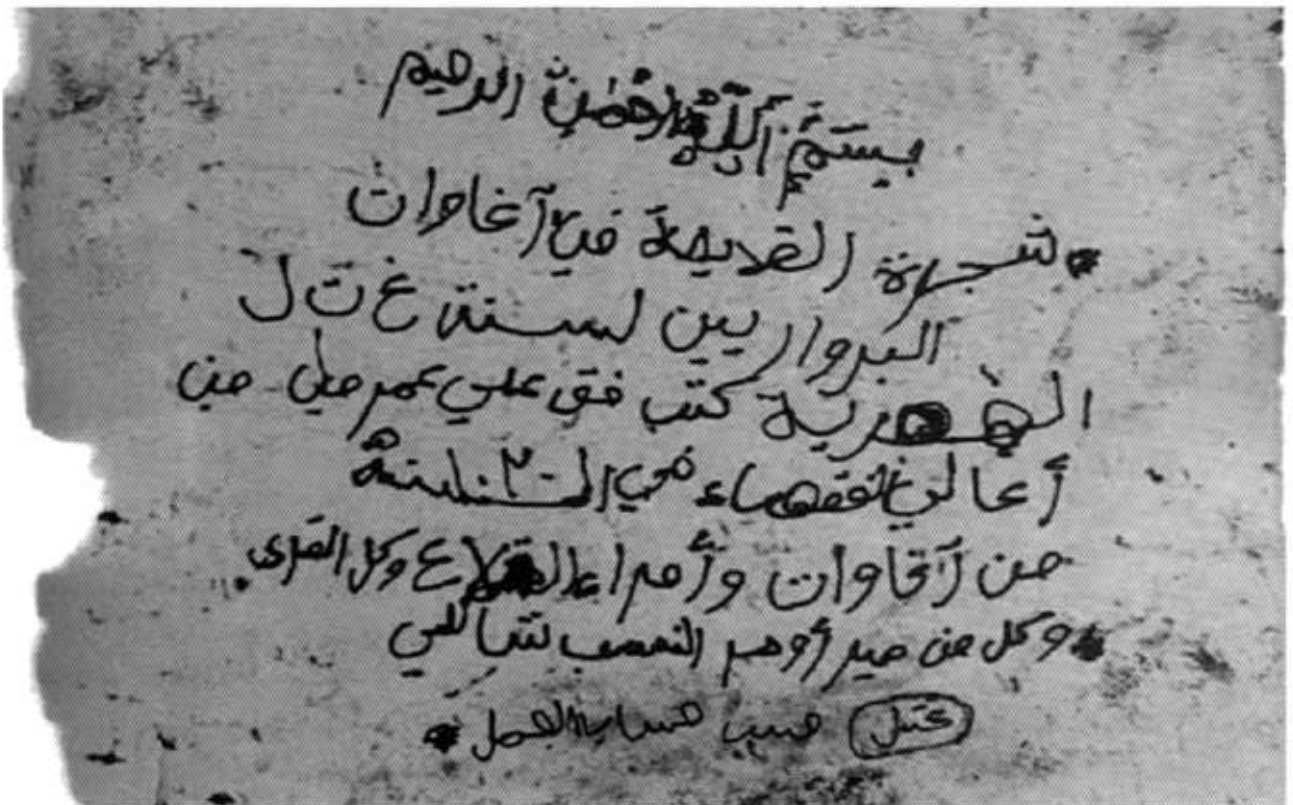 بسم الله الرحمن الرحيم
شجرة القديمة في آغاوات
البرواريين لسنة غ ت ل
الهجرية كتب فقي علي عمر ملي من
أعالي الفقهاء في
من آقاوات وأمراء القلاع وكل القرى
وكل من مير أوهم النصب
غتل حسب حساب الجمل